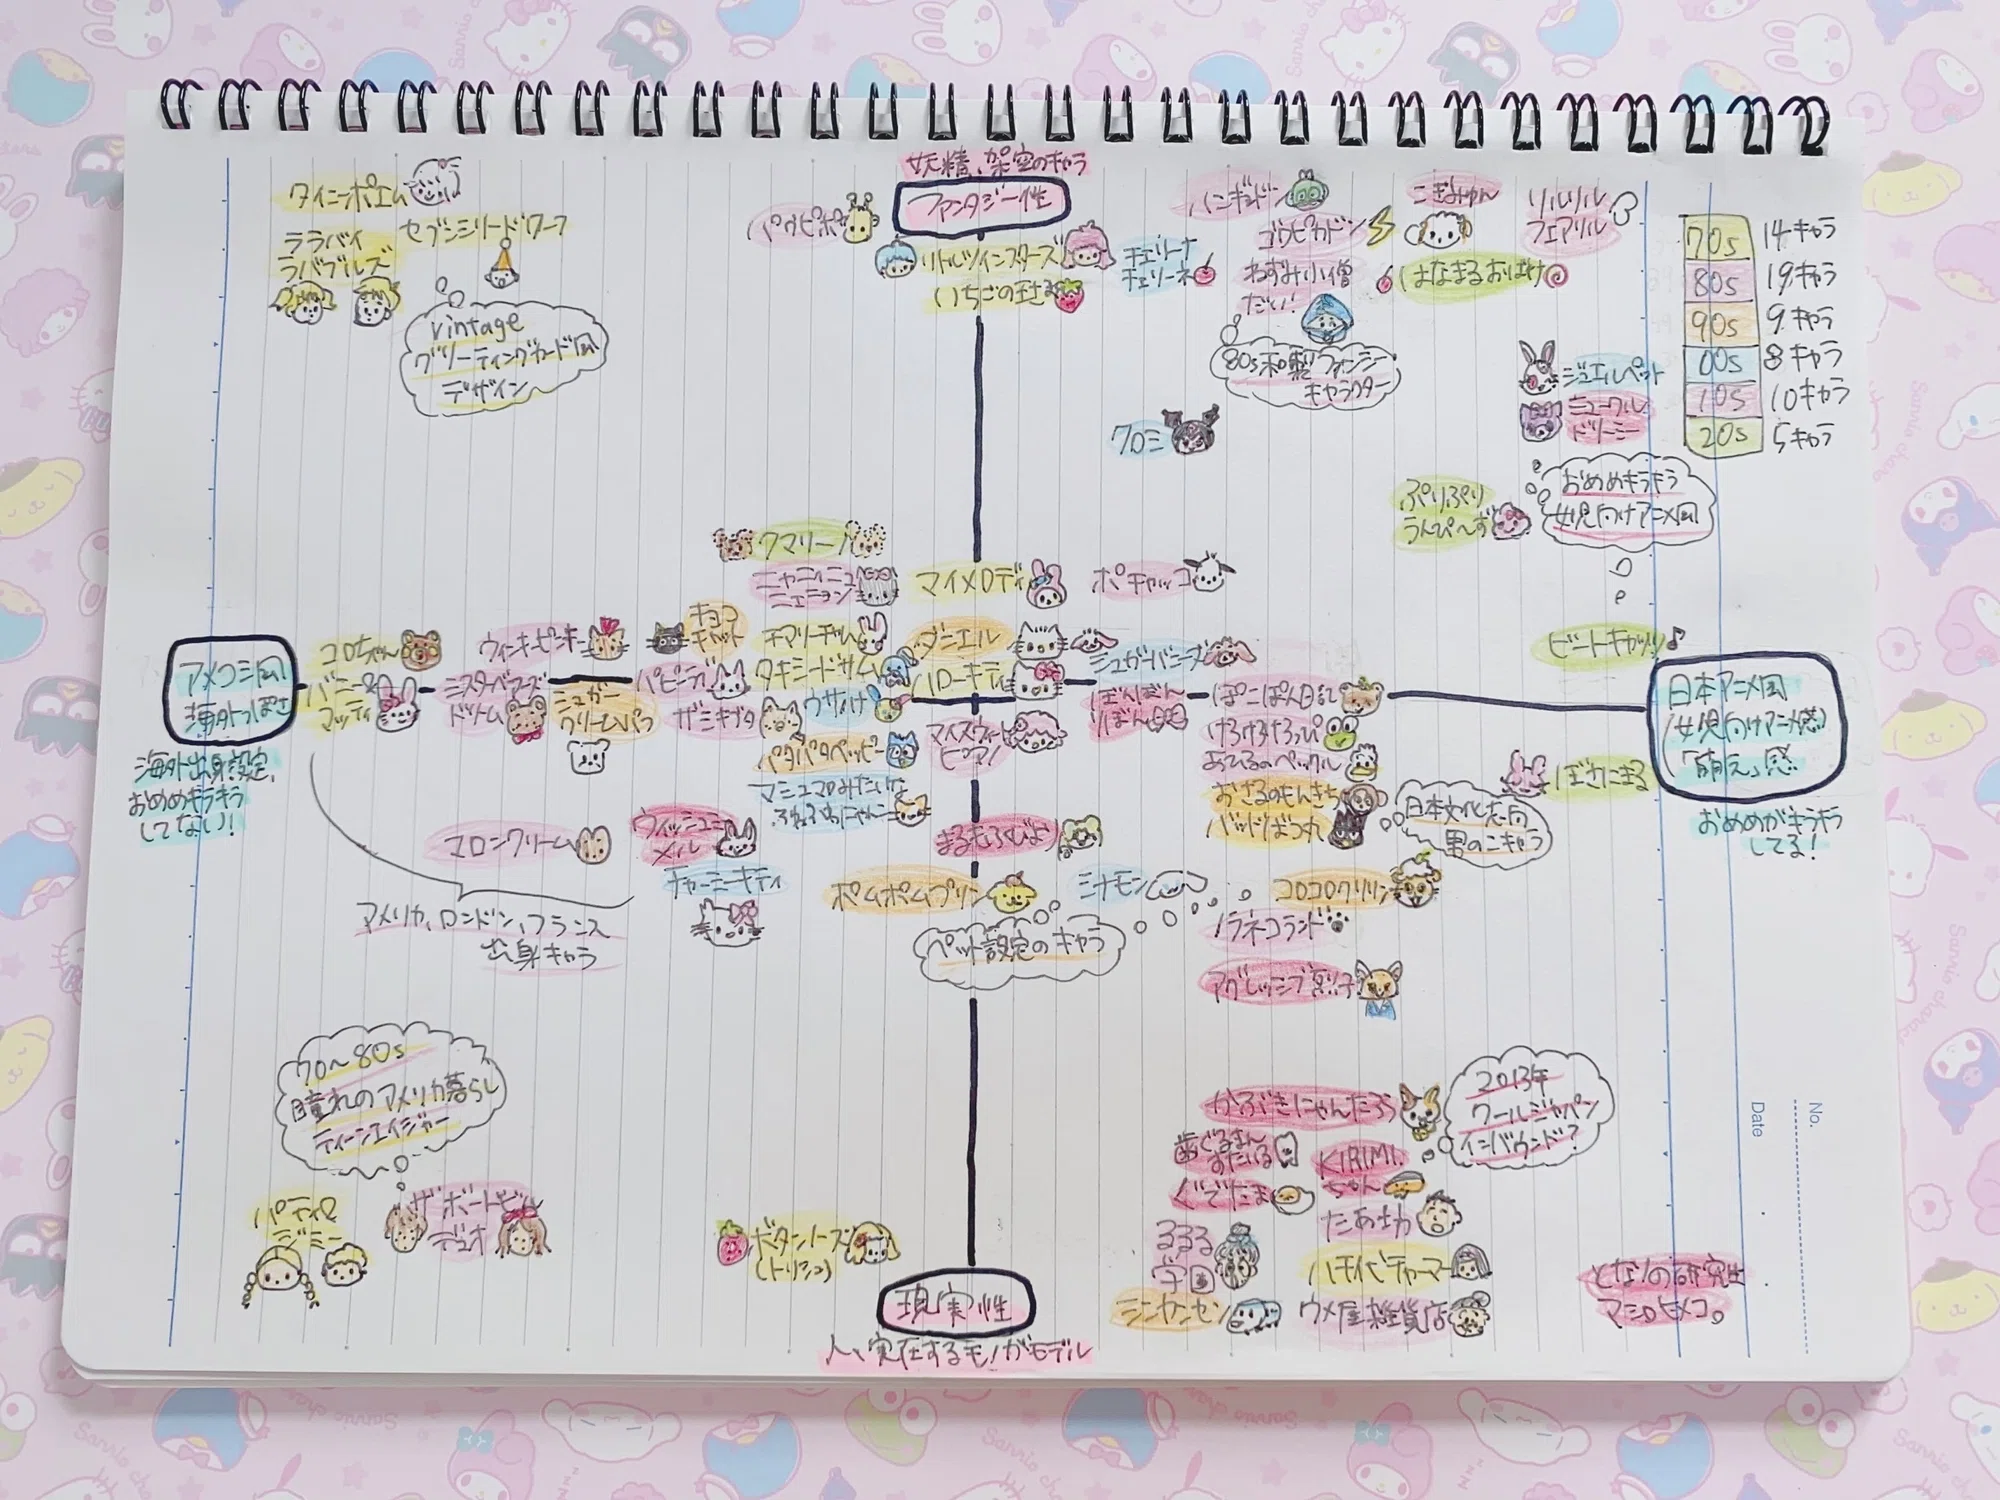 妖精、架空のキャラ
ファンタジー性
タイニーポエム
ララバイ
ラバブルズ
セブンシリードワーフ
vintage
グリーティングカード風
デザイン
パウピポ
リトルツインスターズ
いちごの王さま
チェリーナ
チェリーネ
ハンギョドン
ゴロピカドン
ねずみ小僧
だい!
80s和製ファンシー
キャラクター
こぎみゅん
はなまるおばけ
リルリル
フェアリル
70s 14キャラ
80s 19キャラ
90s 9キャラ
00s 8キャラ
10s 10キャラ
20s 5キャラ
ジュエルペット
ミュークル
ドリーミー
おめめキラキラ
女児向けアニメ風
クロミ
ぷりぷり
うんぴ〜ず
クマリーノ
ニャニィニュ
ニェニョン
マイメロディ
ポチャッコ
ビートキャッツ♪
アメコミ風
海外っぽさ
海外出身設定、
おめめキラキラ
してない!
コロちゃん
バニー&
マッティ
ウィンキーピンキー
ミスターベアーズ
ドリーム
シュガー
クリームパフ
チョコ
キャット
パピーラブ
ザシキブタ
チアリーチャム
タキシードサム
ウサハナ
パタパタペッピー
マシュマロみたいな
ふわふわにゃんこ
ダニエル
ハローキティ
マイスウィート
ピアノ
シュガーバニーズ
ぼんぼん
りぼん
ぽこぽん日記
けろけろけろっぴ
あひるのペックル
おさるのもんきち
バッドばつ丸
日本文化志向
男のこキャラ
ぼさにまる
日本アニメ風
(女児向けアニメ感)
「萌え」感
おめめがキラキラ
してる!
マロンクリーム
ウィッシュミー
メル
チャーミーキティ
まるもふびより
ポムポムプリン
シナモン
コロコロクリリン
ノラネコランド
ペット設定のキャラ
アメリカ、ロンドン、フランス
出身キャラ
アグレッシブ烈子
70〜80s
憧れのアメリカ暮らし
ティーンエイジャー
パティ&
ジミー
ザ ボードビル
デュオ
ボタンノーズ
かぶきにゃんたろう
2013年
クールジャパン
インバウンド?
歯ぐるまん
すたいる
KIRIMI
ちゃん
ぐでたま
たあ坊
るるる
学園
ハチイビチャーマー
シンカンセン
ウメ屋雑貨店
となりの研究生
マシロヒメコ。
現実性
人、実在するモノがモデル
No.
Date